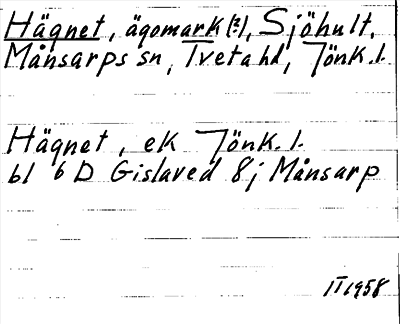 Hägnet, ägomark (?), Sjöhult,
Månsarps sn, Tveta hd, Jönk. l.
Hägnet, ek Jönk. l.
bl 6 D Gislaved 8j Månsarp
II 1958